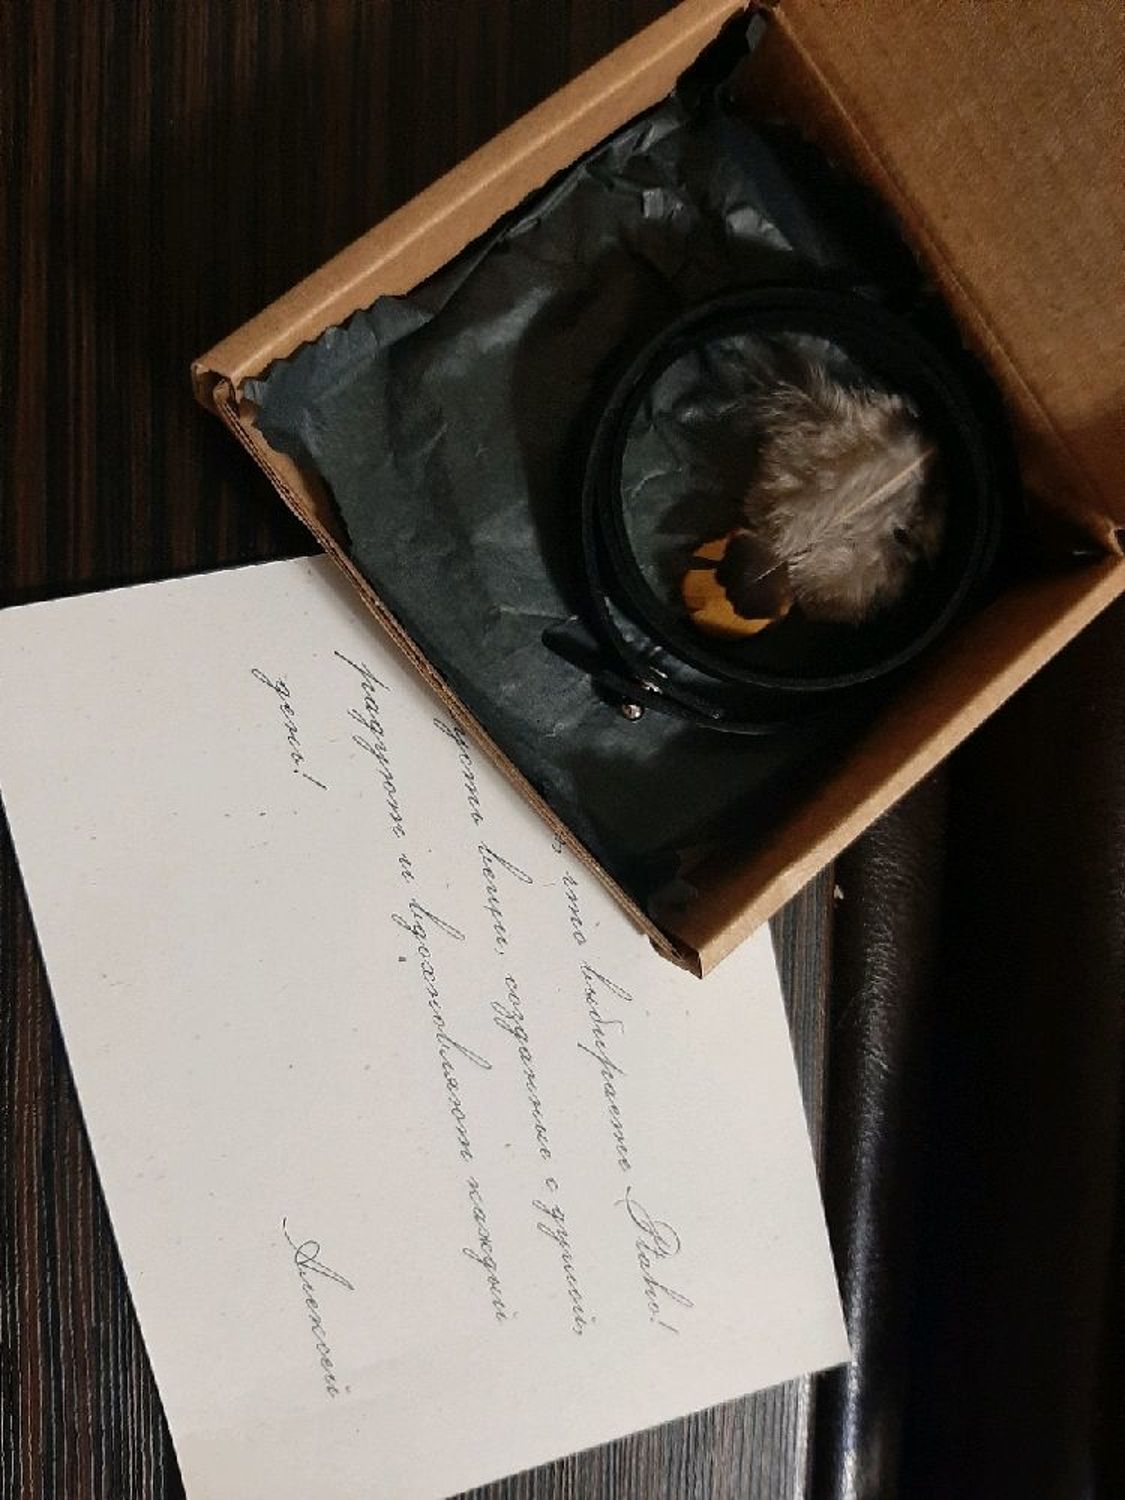 что выбираете Riabo!
усть вещи, созданные с душой,
радуют и вдохновляют каждый
день!
Алексей